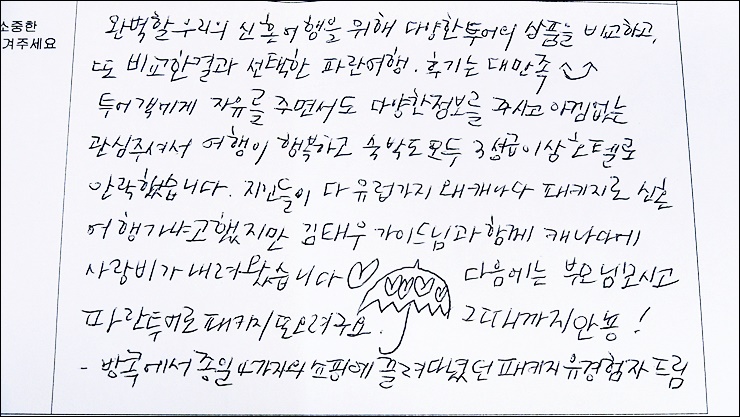 소중한
겨주세요
완벽할 우리의 신혼여행을 위해 다양한 투어의 상품을 비교하고,
또 비교한 결과 선택한 파란여행. 후기는 대만족
투어객에게 자유를 주면서도 다양한 정보를 주시고 아낌없는
관심주셔서 여행이 행복하고 숙박도 모두 3성급이상 호텔로
안락했습니다. 지인들이 다 유럽가지 왜 캐나다 패키지로 신혼
여행가냐고 했지만 김태우 가이드님과 함께 캐나다에
사랑비가 내려왔습니다♡ 다음에는 부모님 모시고
파란투어로 패키지 또 오려구요. 그때까지 안뇽!
- 방콕에서 종일 4가지의 쇼핑에 끌려다녔던 패키지 유경험자 드림